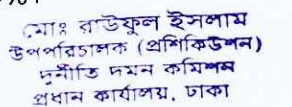 মোঃ রাউফুল ইসলাম
উপপরিচালক (প্রশিকিউশন)
দুর্নীতি দমন কমিশন
প্রধান কার্যালয়, ঢাকা